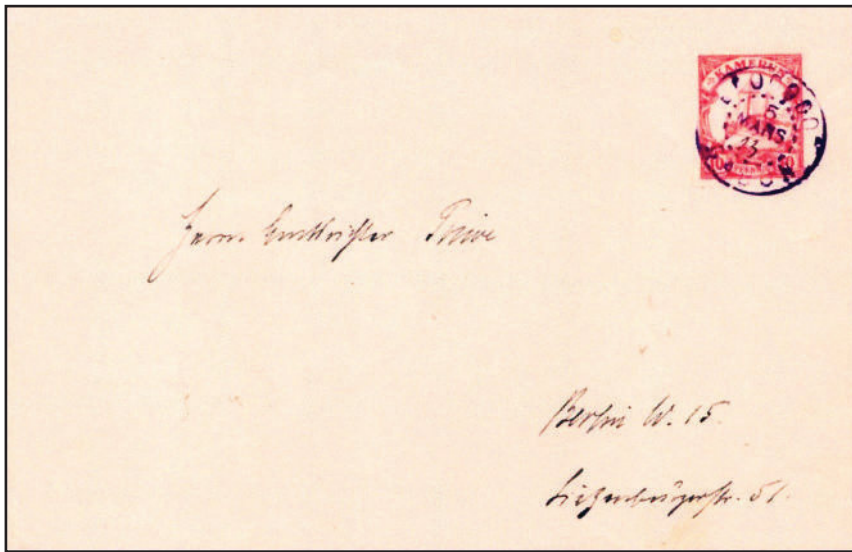 KAMERUN
5
MARS
13
10 10
Herrn Amtsrichter
Berlin W. 15.
Lietzenburgerstr. 51.